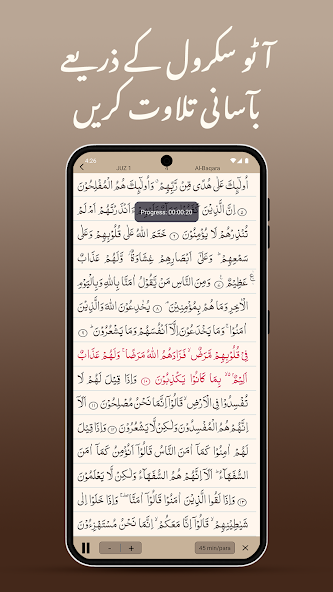 آٹو سکرول کے ذریعے
بآسانی تلاوت کریں
4:26
JUZ 1
Al-Baqara
اُولٰٓئِكَ عَلٰى هُدًى مِّنْ رَّبِّهِمْ ۙ وَاُولٰٓئِكَ هُمُ الْمُفْلِحُوْنَ
۵ اِنَّ الَّذِيْنَ
ءَاَنْذَرْتَهُمْ اَمْ لَمْ
Progress: 00:00:20
تُنْذِرْهُمْ لَا يُؤْمِنُوْنَ ۶ خَتَمَ اللّٰهُ عَلٰى قُلُوْبِهِمْ وَعَلٰى
سَمْعِهِمْ ؕ وَعَلٰٓى اَبْصَارِهِمْ غِشَاوَةٌ ؗ وَّلَهُمْ عَذَابٌ
عَظِيْمٌ ۷ وَمِنَ النَّاسِ مَنْ يَّقُوْلُ اٰمَنَّا بِاللّٰهِ وَبِالْيَوْمِ
الْاٰخِرِ وَمَا هُمْ بِمُؤْمِنِيْنَ ۘ ۸ يُخٰدِعُوْنَ اللّٰهَ وَالَّذِيْنَ
اٰمَنُوْا ۚ وَمَا يَخْدَعُوْنَ اِلَّاۤ اَنْفُسَهُمْ وَمَا يَشْعُرُوْنَ ؕ ۹
فِىْ قُلُوْبِهِمْ مَّرَضٌ ۙ فَزَادَهُمُ اللّٰهُ مَرَضًا ۚ وَلَهُمْ عَذَابٌ
اَلِيْمٌ ۙ بِمَا كَانُوْا يَكْذِبُوْنَ ۱۰ وَاِذَا قِيْلَ لَهُمْ لَا
تُفْسِدُوْا فِى الْاَرْضِ ۙ قَالُوْٓا اِنَّمَا نَحْنُ مُصْلِحُوْنَ ۱۱ اَلَآ
اِنَّهُمْ هُمُ الْمُفْسِدُوْنَ وَلٰكِنْ لَّا يَشْعُرُوْنَ ۱۲ وَاِذَا قِيْلَ
لَهُمْ اٰمِنُوْا كَمَآ اٰمَنَ النَّاسُ قَالُوْٓا اَنُؤْمِنُ كَمَآ اٰمَنَ
السُّفَهَآءُ ؕ اَلَآ اِنَّهُمْ هُمُ السُّفَهَآءُ وَلٰكِنْ لَّا يَعْلَمُوْنَ
۱۳ وَاِذَا لَقُوا الَّذِيْنَ اٰمَنُوْا قَالُوْٓا اٰمَنَّا ۖ وَاِذَا خَلَوْا اِلٰى
شَيٰطِيْنِهِمْ ۙ قَالُوْٓا اِنَّا مَعَكُمْ ۙ اِنَّمَا نَحْنُ مُسْتَهْزِءُوْنَ
- +
45 min/para